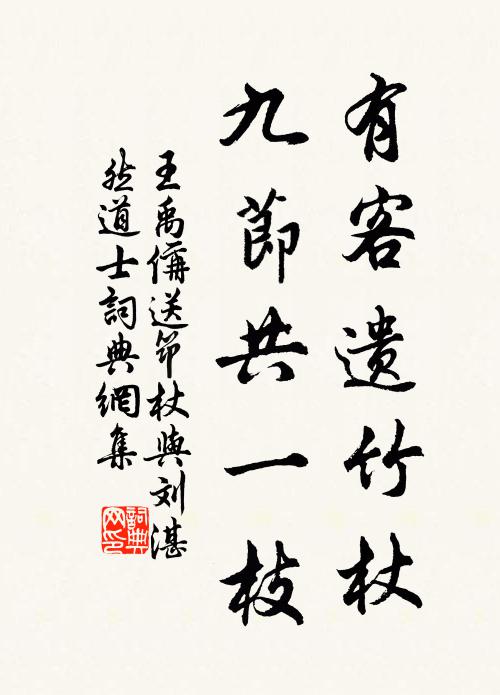 有客遗竹杖
九節共一枝
王禹偁送笻杖與刘湛
然道士詞典網集
詞典网印